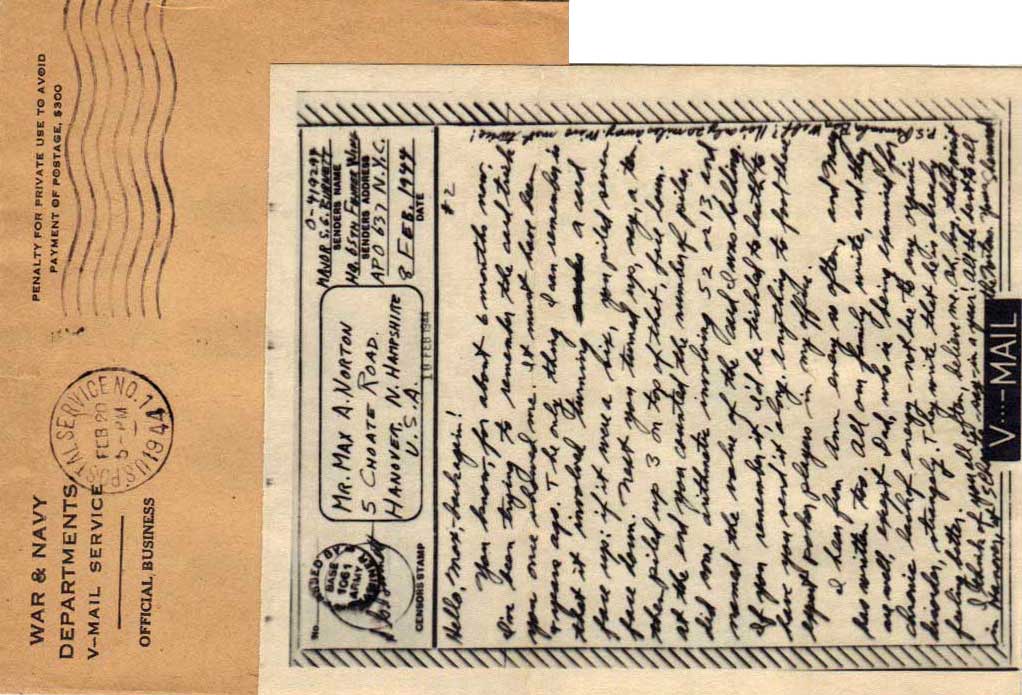 WAR & NAVY
DEPARTMENTS
V-MAIL SERVICE
OFFICIAL BUSINESS
POSTAL SERVICE NO. 1
FEB 20
5-PM
1944
PENALTY FOR PRIVATE USE TO AVOID
PAYMENT OF POSTAGE, $300
No.
BASE
1061
ARMY
CENSOR'S STAMP
MR. MAX A. NORTON
5 CHOATE ROAD.
HANOVER, N. HAMPSHIRE
U. S. A.
19 FEB 1944
0-419299
SENDERS NAME
SENDERS ADDRESS
APO 637 N.Y.C.
8 FEB. 1944
DATE
#2
Hello, Max, back again!
You know, for about 6 months now,
I've been trying to remember the card trick
you once showed me. It must have been
years ago. The only thing I can remember is
that it involved turning a card
face up; if it was a six, you piled seven
face down. Next you turned up, say, a ten
then piled up 3 on top of that, face down.
at the end you counted the number of piles,
did some arithmetic involving 52 or 13 and
named the value of the card I was holding.
If you remember it, I'd be tickled to death to
have you send it along. Anything to foil these
expert poker players in my office.
I hear from Ann every so often, and Mary
has written too. All our family write, and they
are well, except Dad, who is being examined for
chronic lack of energy - not due to my vigorous
drives, strangely. They write that he is already
feeling better.
I think of you all often, believe me, and hope
in Hanover
P.S. Remember
Welf? He's only 20 miles away. Have met twice!
V···—MAIL